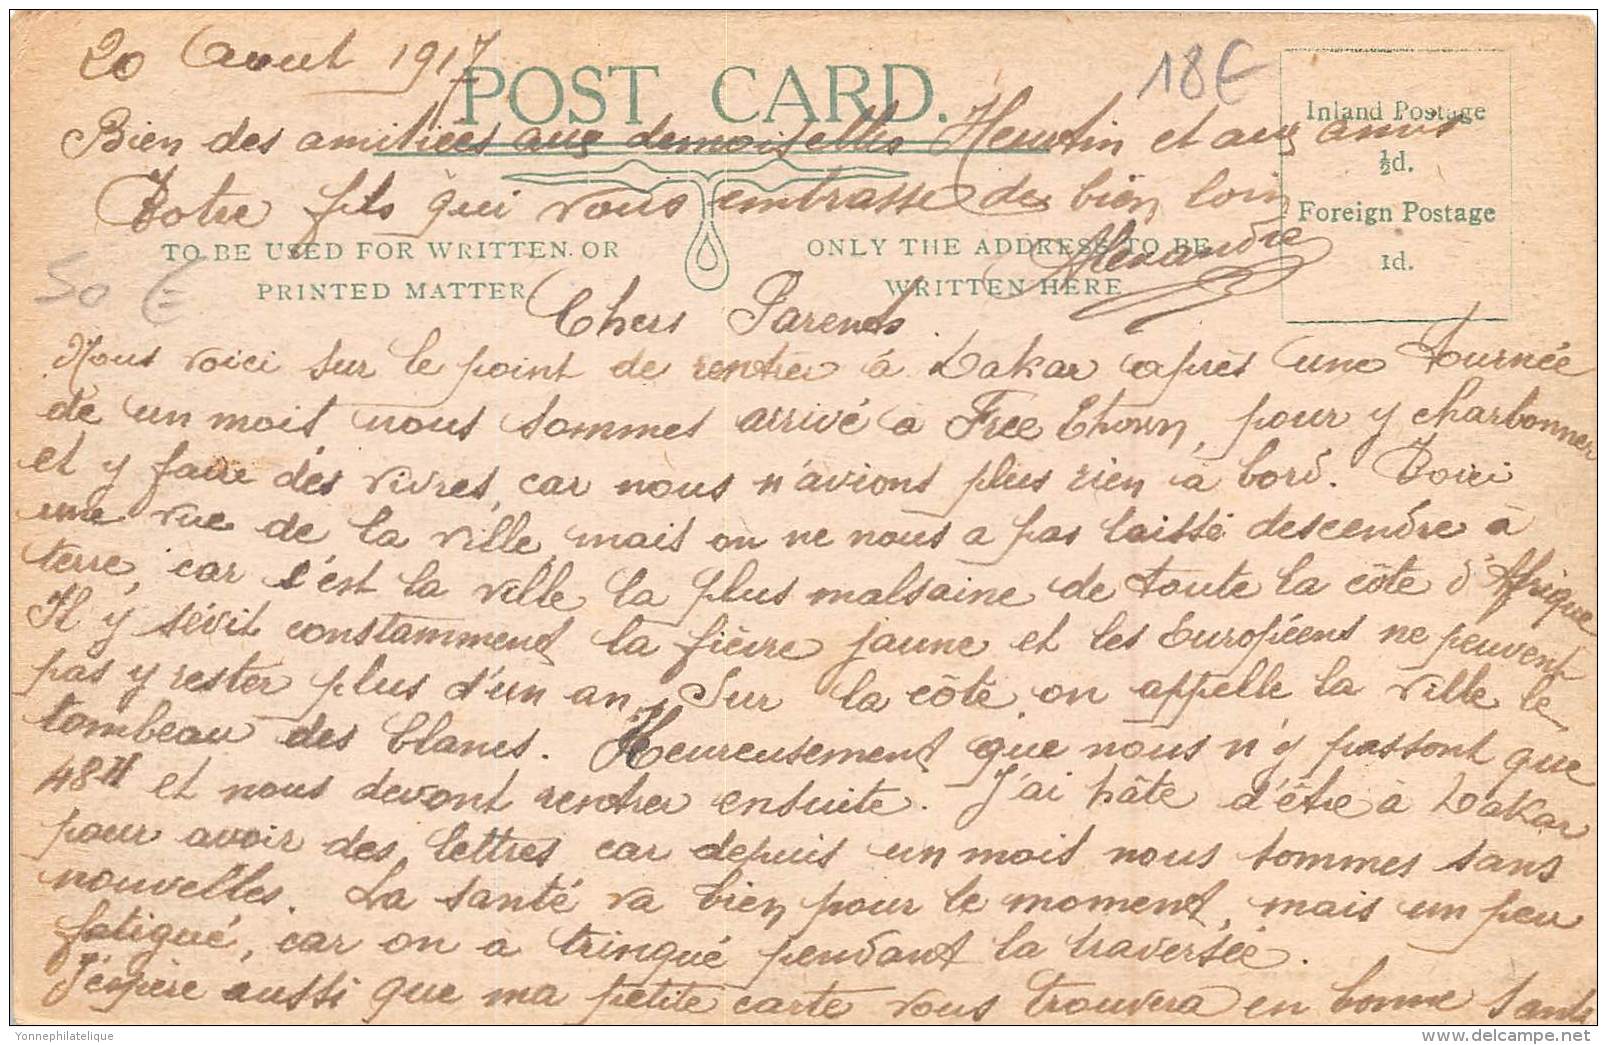 20 Aout 1917
18€
POST CARD.
Bien des amitiées aux demoiselles Heurtin et aux amis
Votre fils qui vous embrasse de bien loin
Alexandre
Inland Postage
½d.
Foreign Postage
1d.
TO BE USED FOR WRITTEN OR
PRINTED MATTER
ONLY THE ADDRESS TO BE
WRITTEN HERE
50 €
Chers Parents
Nous voici sur le point de rentrer à Dakar après une tournée
de un mois nous sommes arrivé a Free Thown, pour y charbonner
et y faire des vivres, car nous n'avions plus rien à bord. Voici
une vue de la ville, mais on ne nous a pas laissé descendre à
terre, car c'est la ville la plus malsaine de toute la côte d'Afrique
Il y sévit constamment la fièvre jaune et les Européens ne peuvent
pas y rester plus d'un an. Sur la côte on appelle la ville le
tombeau des blancs. Heureusement que nous n'y passont que
48H et nous devont rentrer ensuite. J'ai hâte d'être à Dakar
pour avoir des lettres car depuis un mois nous sommes sans
nouvelles. La santé va bien pour le moment, mais un peu
fatigué, car on a trinqué pendant la traversée.
J'espère aussi que ma petite carte vous trouvera en bonne santé
Yonnephilatelique
www.delcampe.net